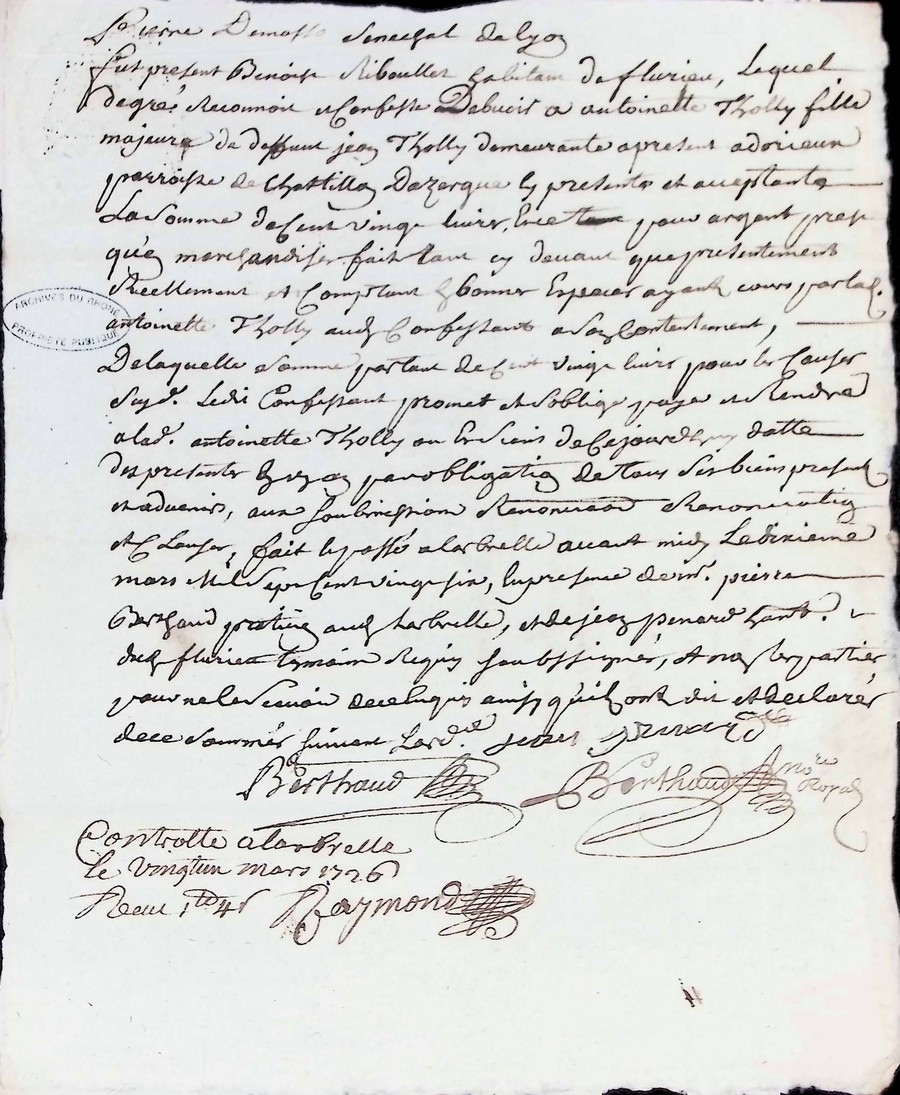 Pierre Demasso Senechal de lyon
fut present Benoist Riboullet habitant de flurieu, Lequel
de gré, Reconnoit et Confesse Debvoir a antoinette Tholly fille
majeure de deffunt jean Tholly demeurante a present a dorieux
parroisse de Chastillon Dazergue icy presente et acceptante
La Somme de Cent vingt livres, pour argent preste
qu'en marchandises fait tant cy devant que presentement
Reellement et Comptant En bonnes Especes ayant cours par lad.
antoinette Tholly aud. Confessant a son Contentement,
De laquelle Somme partant de Cent vingt livres pour les Causes
Susd. Ledit Confessant promet et soblige payer et Rendre
a lad. antoinette Tholly ou Es Siens de Cejourdhuy datte
des presentes En par obligation de tous Ses biens presents
et advenirs, aux Soubmissions Renonciation
et Clauses, fait et passé a larbresle avant midy Le dixieme
mars Mil Sept Cent vingt six, En presence de mr. pierre
Berthaud praticien aud. Larbresle, et de jean penard habt.
dud. flurieu temoins Requis Soubssignés, Et non les parties
pour ne le Scavoir de ce Enquis ainsy qu'ils ont dit et declarés
de ce Sommés Suivant Lord.ce jean penard
Berthaud Berthaud no.re Royal
Controlle a larbresle
Le vingtun mars 1726
Receu 1tt 4s Raymond
ARCHIVES DU RHONE
PROPRIÉTÉ PUBLIQUE